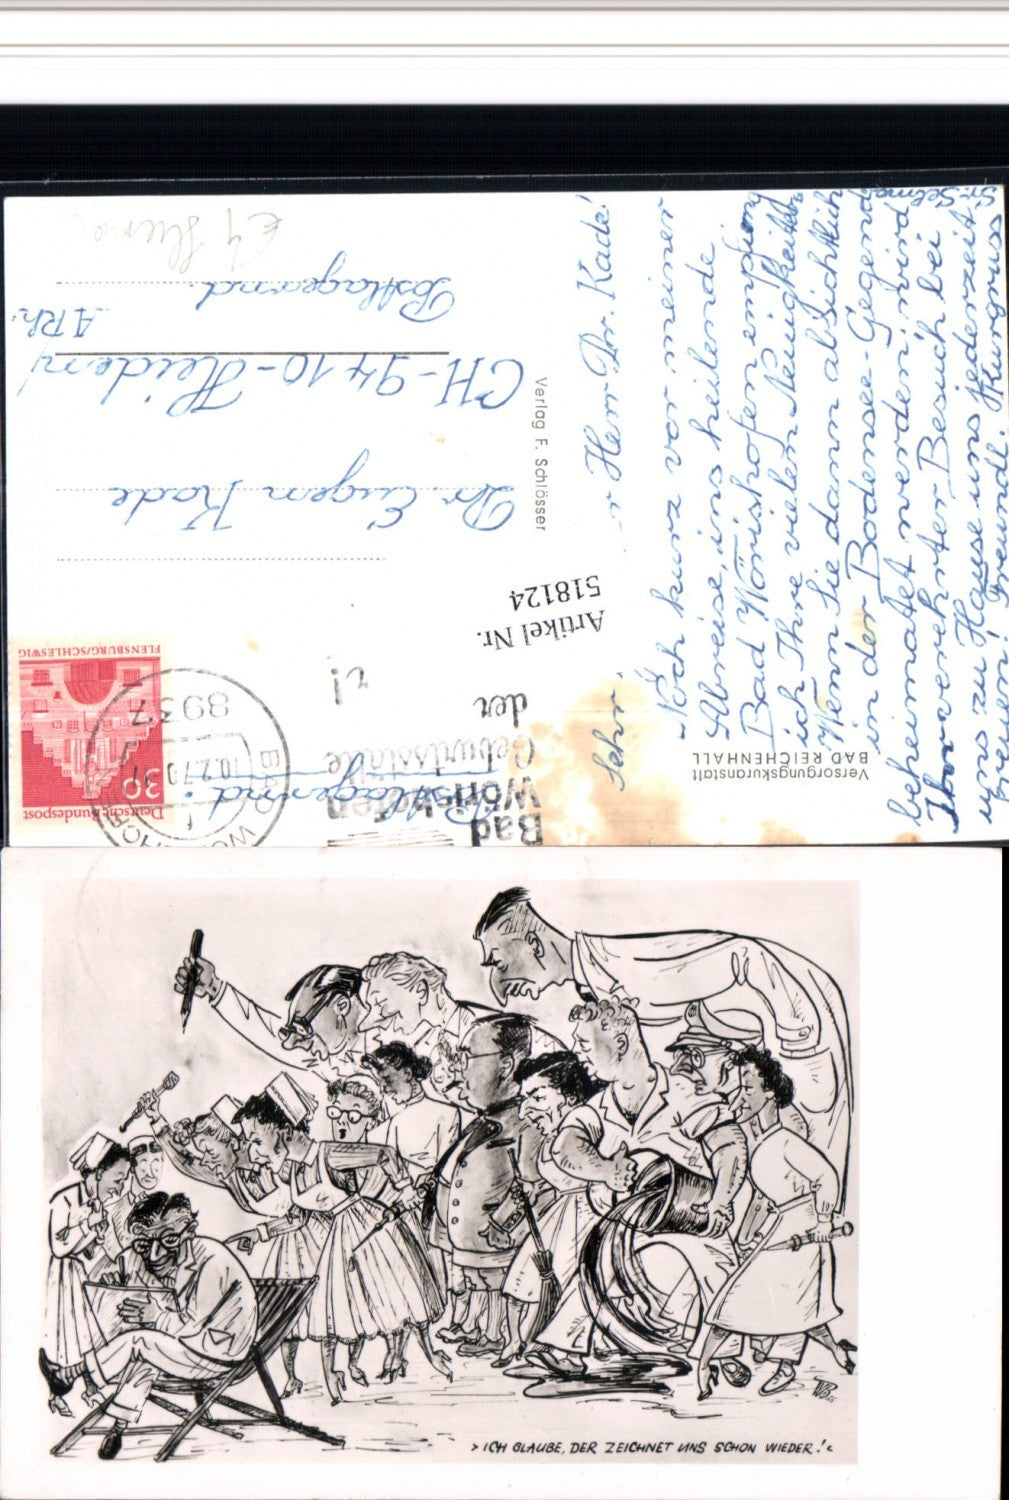 Sehr
Herr Dr. Kade!
Noch kurz vor meiner
Abreise, ins heilende
Bad Wörishofen empfing
ich Ihre vielen Neuigkeiten
Wenn Sie dann absichtlich
in der Bodensee-Gegend
beheimatet werden, wird
Ihr verehrter Besuch bei
uns zu Hause uns jederzeit
freuen! Freundl. Kurgruss
Sr. Selma
Versorgungskuranstalt
BAD REICHENHALL
Verlag F. Schlösser
Artikel Nr.
518124
Bad
Wörishofen
Geburtsstätte
der
8937
10.2.70
Deutsche Bundespost
30
FLENSBURG/SCHLESWIG
Dr. Eugen Kade
CH-9410-Heiden/
A Rh.
Postlagernd
>ICH GLAUBE, DER ZEICHNET UNS SCHON WIEDER!<